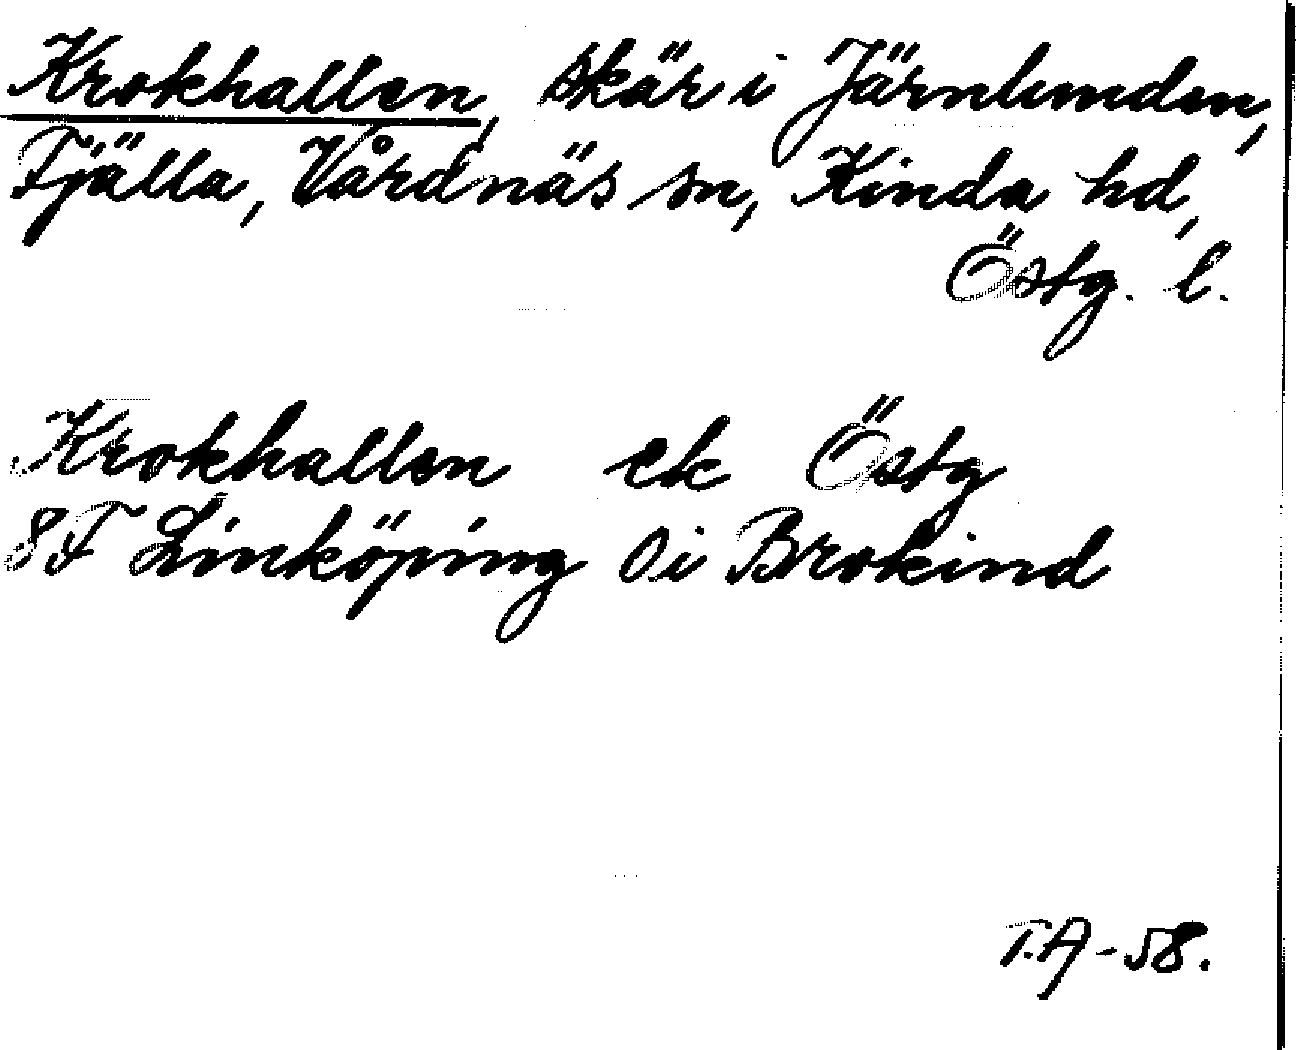 Krokhallen, skär i Järnlunden,
Fjälla, Vårdnäs sn, Kinda hd,
Östg. l.
Krokhallen ek Östg
8F Linköping 0i Brokind
T.A-58.